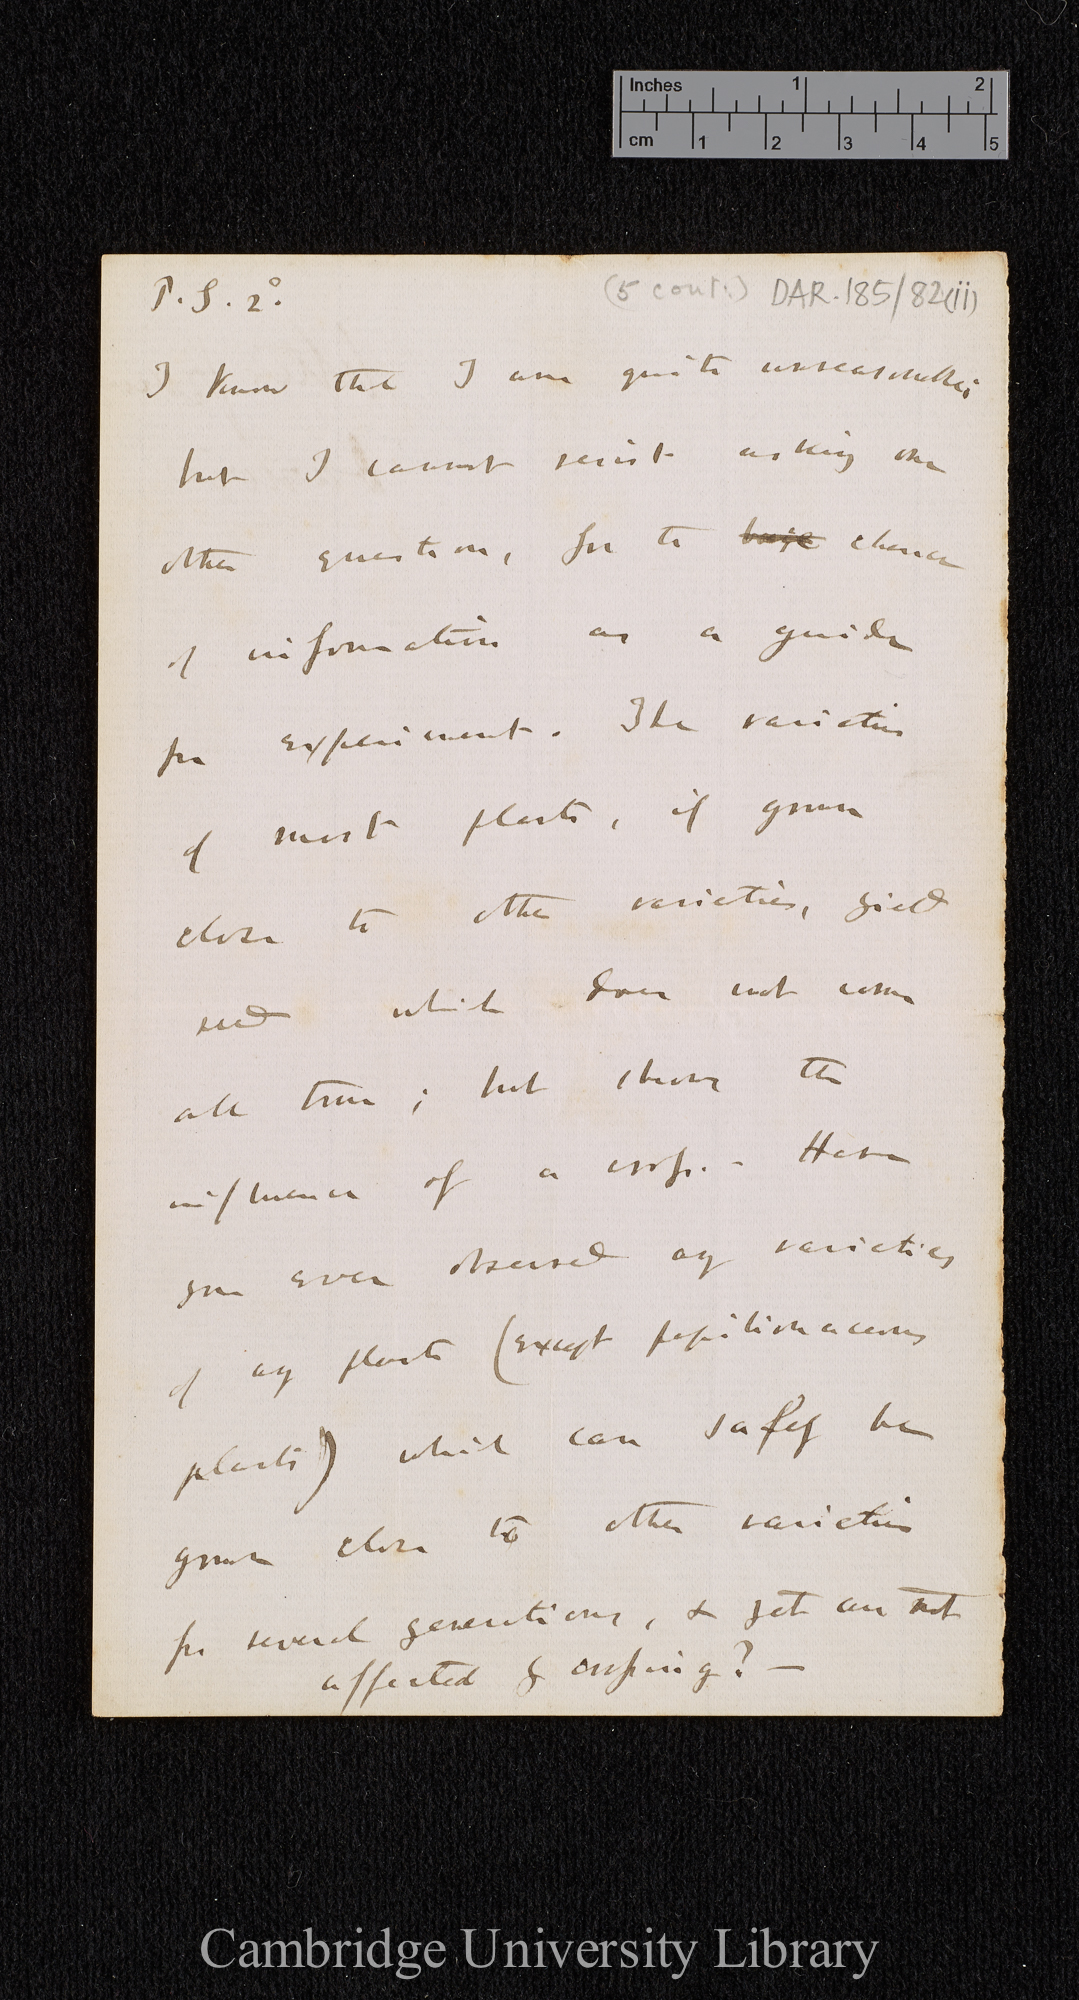 Inches 1 2
cm 1 2 3 4 5
P.S. 2°.
(5 cont.) DAR.185/82(ii)
I know that I am quite unreasonable;
but I cannot resist asking one
other question, for the chance
of information as a guide
for experiment. The varieties
of most plants, if grown
close to other varieties, yield
seed which does not come
all true; but shows the
influence of a cross.— Have
you ever observed any varieties
of any plants (except papilionaceous
plants) which can safely be
grown close to other varieties
for several generations, & yet are not
affected by crossing?—
Cambridge University Library